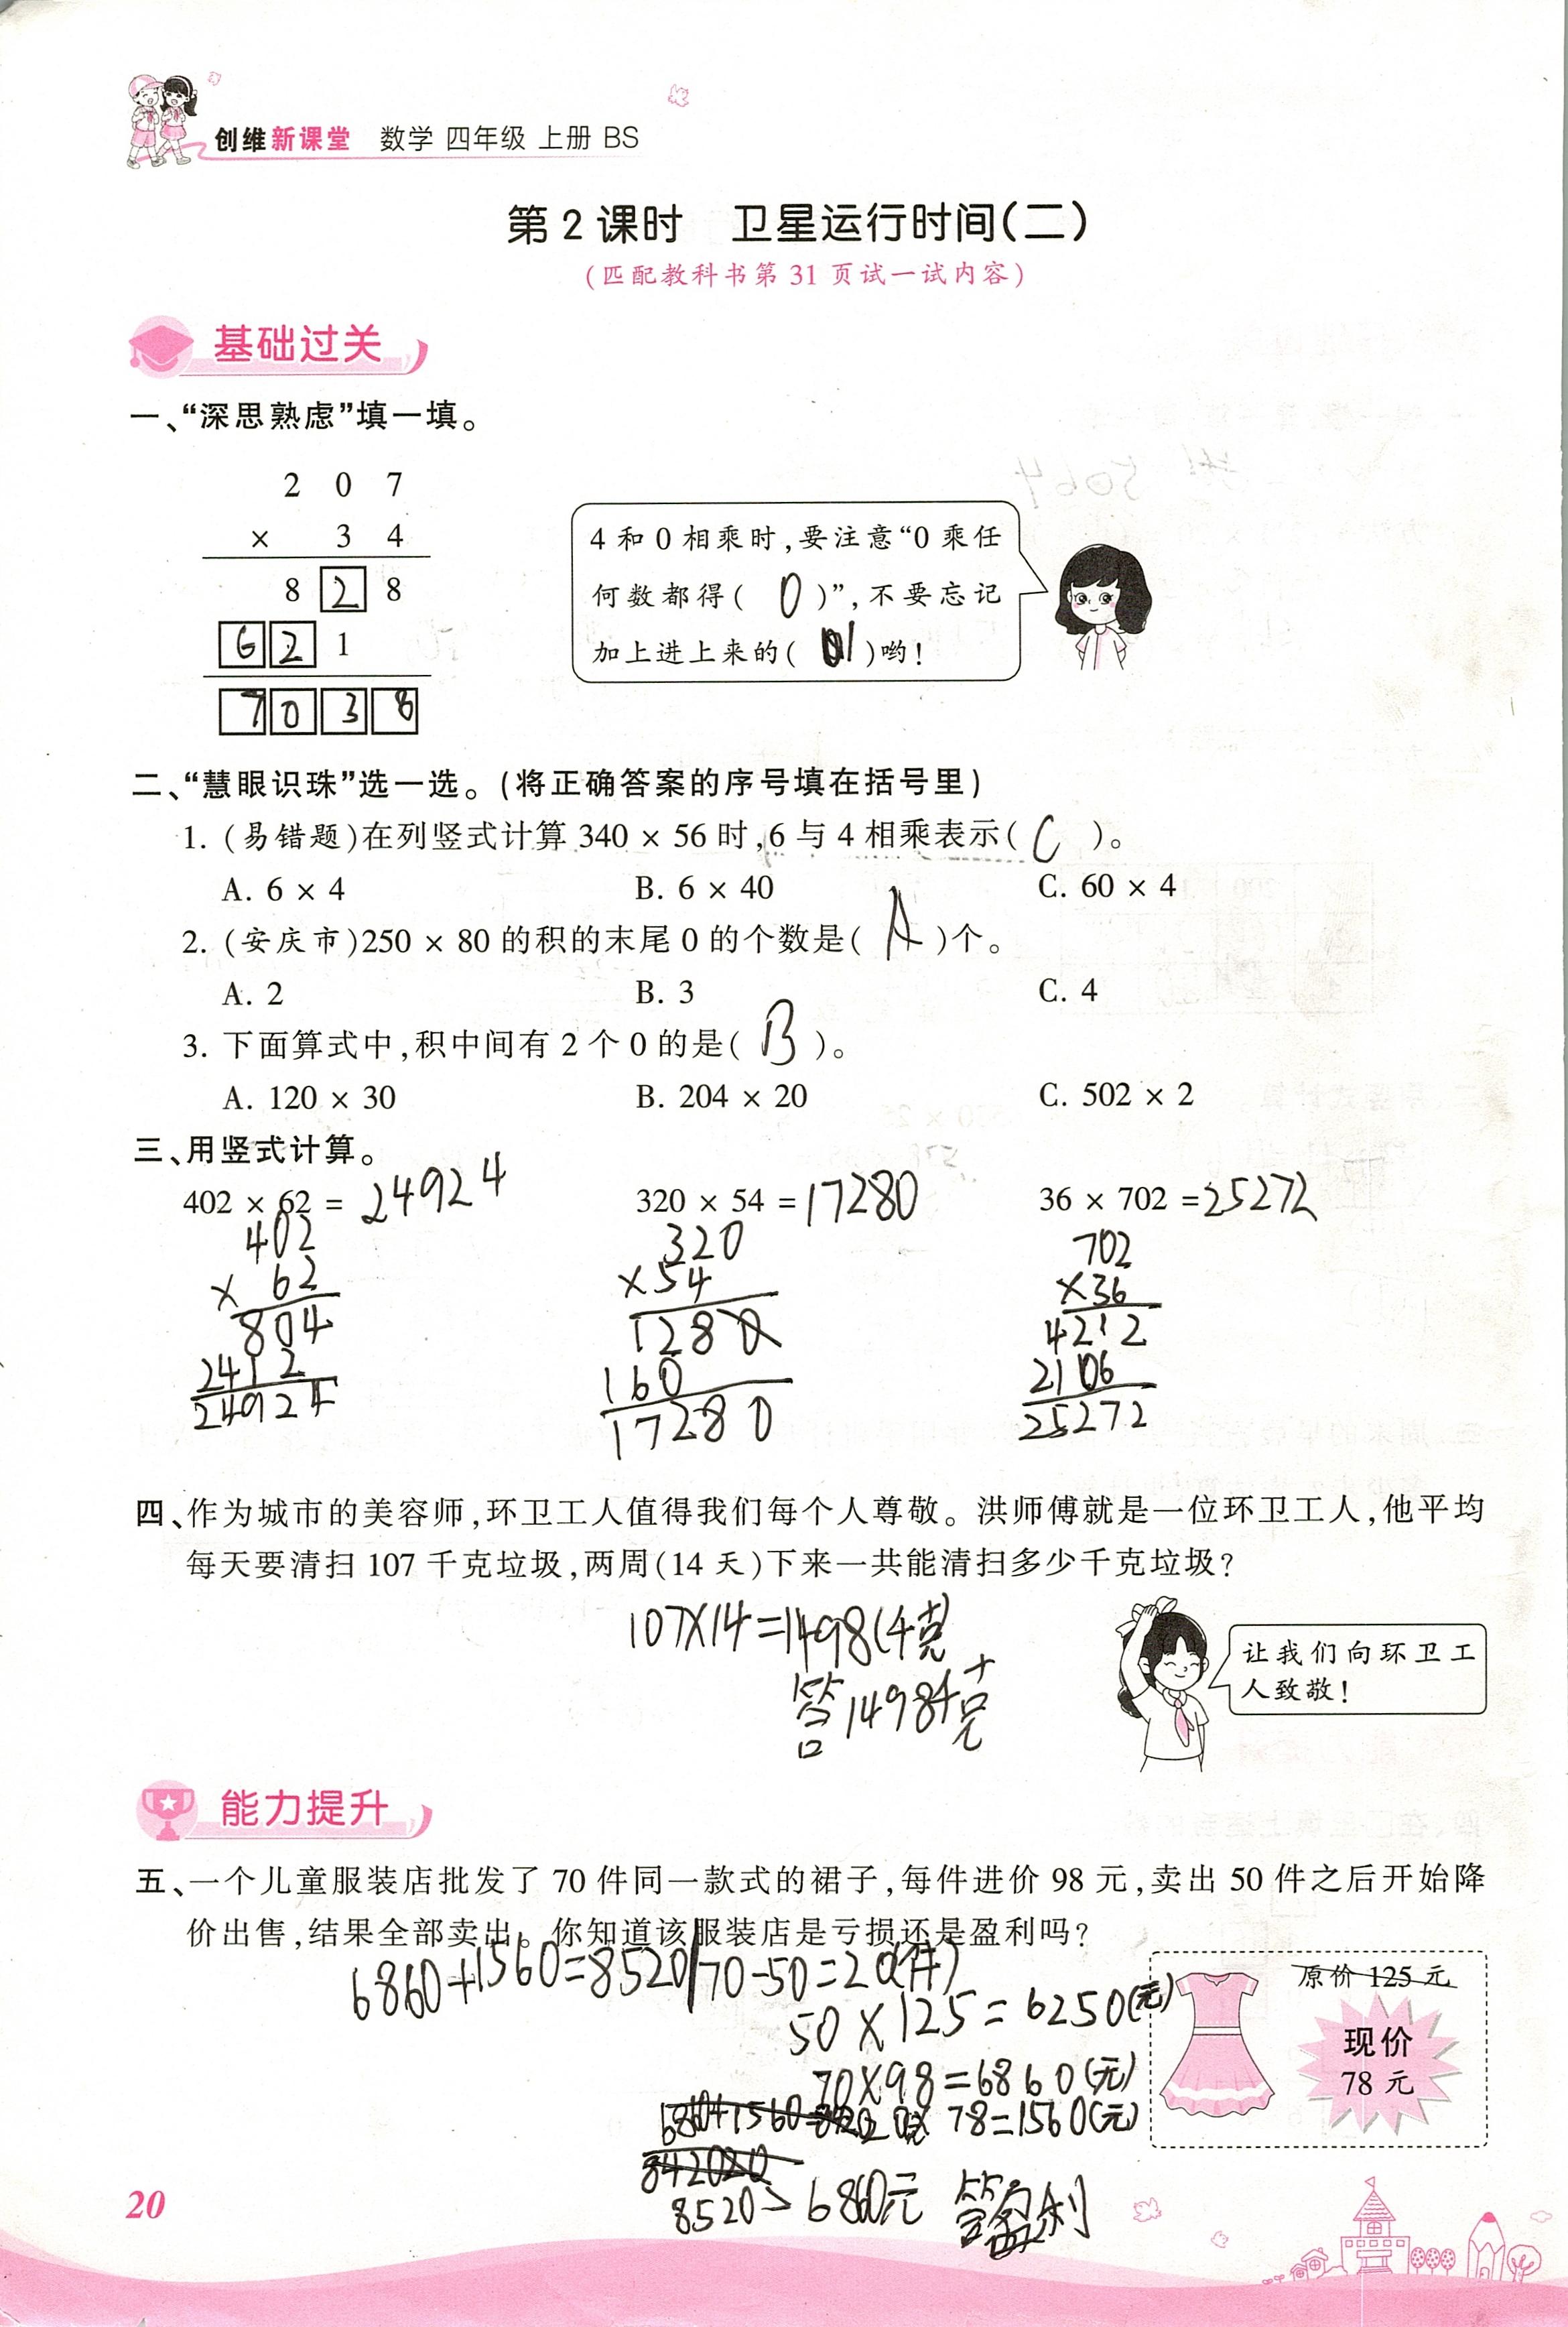 创维新课堂 数学 四年级 上册 BS
第 2 课时 卫星运行时间(二)
(匹配教科书第 31 页试一试内容)
基础过关
一、“深思熟虑”填一填。
2 0 7
× 3 4
8 2 8
6 2 1
7 0 3 8
4 和 0 相乘时,要注意“0 乘任
何数都得( 0 )”,不要忘记
加上进上来的( 1 )哟!
二、“慧眼识珠”选一选。(将正确答案的序号填在括号里)
1. (易错题)在列竖式计算 340 × 56 时,6 与 4 相乘表示( C )。
A. 6 × 4 B. 6 × 40 C. 60 × 4
2. (安庆市)250 × 80 的积的末尾 0 的个数是( A )个。
A. 2 B. 3 C. 4
3. 下面算式中,积中间有 2 个 0 的是( B )。
A. 120 × 30 B. 204 × 20 C. 502 × 2
三、用竖式计算。
402 × 62 = 24924 320 × 54 = 17280 36 × 702 = 25272
402 320 702
× 62 ×54 ×36
804 1280 4212
2412 160 2106
24924 17280 25272
四、作为城市的美容师,环卫工人值得我们每个人尊敬。洪师傅就是一位环卫工人,他平均
每天要清扫 107 千克垃圾,两周(14 天)下来一共能清扫多少千克垃圾?
107×14=1498(千克
答1498千克
让我们向环卫工
人致敬!
能力提升
五、一个儿童服装店批发了 70 件同一款式的裙子,每件进价 98 元,卖出 50 件之后开始降
价出售,结果全部卖出。你知道该服装店是亏损还是盈利吗?
6860+1560=8520 70-50=20(件)
50×125=6250(元)
70×98=6860(元)
78=1560(元)
8520>6860元 答盈利
原价 125 元
现价
78 元
20